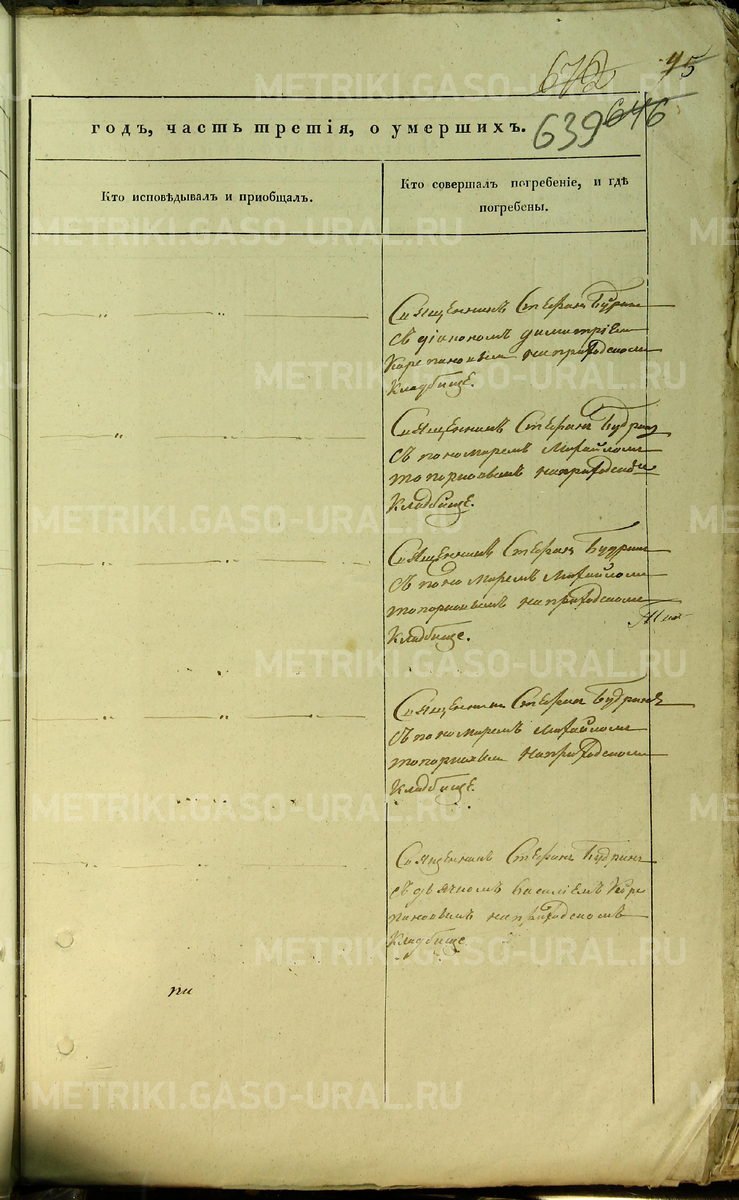 672
45
646
639
годъ, часть третія, о умершихъ.
Кто исповѣдывалъ и приобщалъ.
Кто совершалъ погребеніе, и гдѣ
погребены.
Священникъ Стефанъ Будринъ
съ діакономъ Димитріемъ
Карпановымъ на приходскомъ
Кладбище.
Священникъ Стефанъ Будринъ
съ пономаремъ Михайломъ
Топорковымъ на приходскомъ
Кладбище.
Священникъ Стефанъ Будринъ
съ пономаремъ Михайломъ
Топорковымъ на приходскомъ
Кладбище.
Священникъ Стефанъ Будринъ
съ пономаремъ Михайломъ
Топорковымъ на приходскомъ
Кладбище.
Священникъ Стефанъ Будринъ
съ дьячкомъ Василіемъ
на приходскомъ
Кладбище.
METRIKI.GASO-URAL.RU